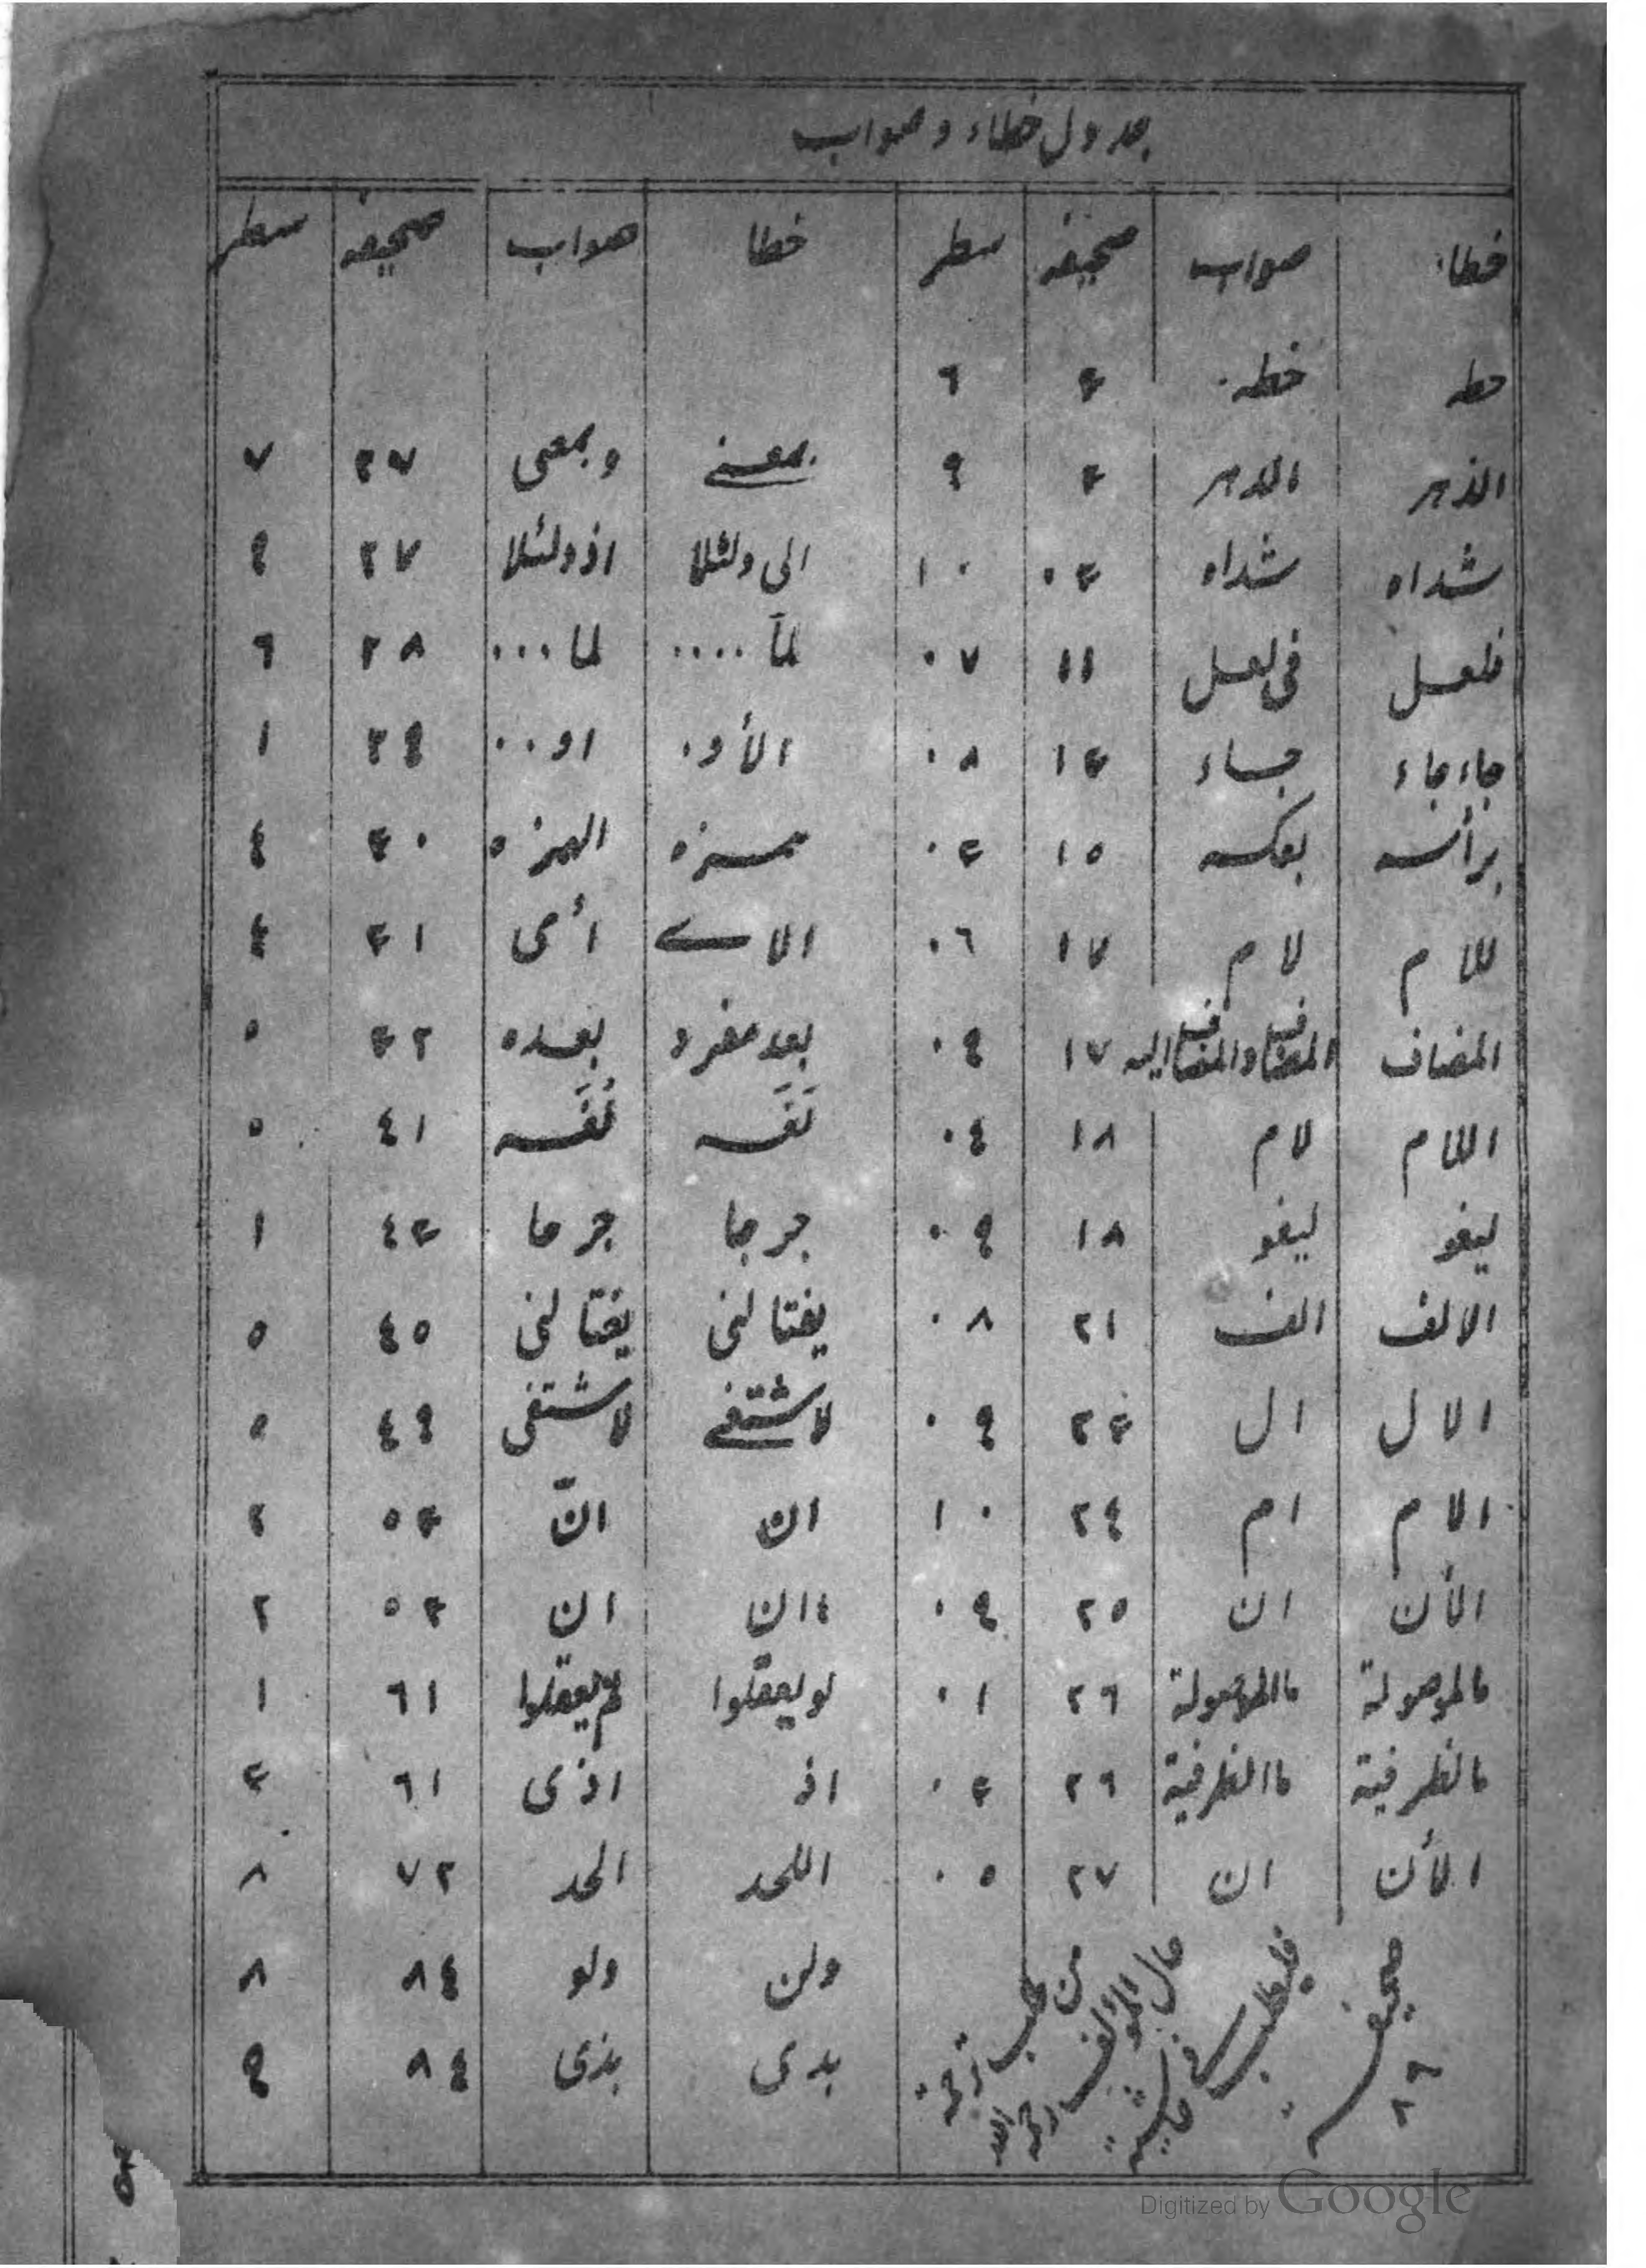 جدول خطاء وصواب
خطاء صواب صحيفه سطر خطا صواب صحيفه سطر
حطه خطه ٣ ٦
الذهر الدهر ٣ ٩ بمعنى وبمعى ٢٧ ٧
شداه شداه ٣٠ ١٠ الى ولئلا اذولئلا ٢٧ ٩
فلعل فى لعل ١١ ٠٧ لمآ .... لما ... ٢٨ ٦
جاء جاء جاء ١٣ ٠٨ الأو. او.. ٢٩ ١
برأسه بعكسه ١٥ ٠٣ همزه الهمزه ٣٠ ٤
للام لام ١٧ ٠٦ الاى أى ٣١ ٤
المضاف المضاف والمضاف اليه ١٧ ٠٩ بعد مفرد بعده ٣٢ ٥
اللام لام ١٨ ٠٤ ٤١ ٥
ليغو ليغو ١٨ ٠٩ جرجا جرحا ٤٣ ١
الالف الف ٢١ ٠٨ يفتالنى يغتالنى ٤٥ ٥
الال ال ٢٣ ٠٩ لاشتفى لاشتفى ٤٩ ٥
الام ام ٢٤ ١٠ ان انّ ٥٣ ٢
الأن ان ٢٥ ٠٩ ءان ان ٥٣ ٢
مالموصولة ماالموصولة ٢٦ ٠١ لو يعقلوا لم يعقلوا ٦١ ١
مالظرفية ماالظرفية ٢٦ ٠٣ اذ اذى ٦١ ٣
الأن ان ٢٧ ٠٥ اللحد الحد ٧٢ ٨
ولن ولو ٨٤ ٨
بدى بذى ٨٤ ٩
صحيفه ٢٩
Digitized by Google